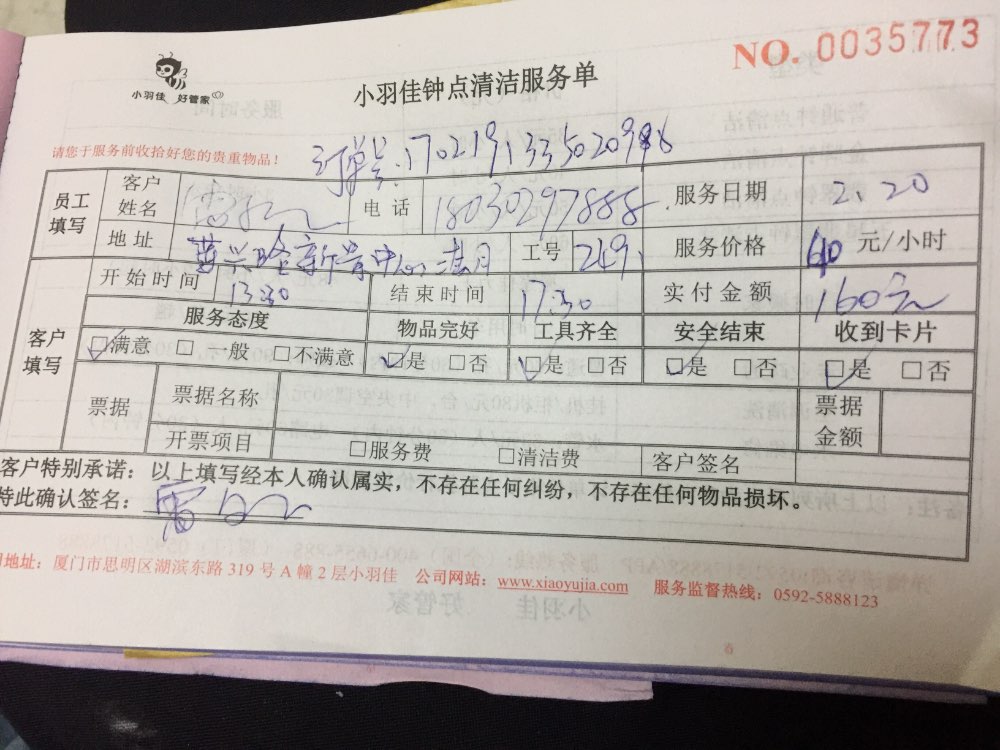 NO. 0035773
小羽佳 好管家
小羽佳钟点清洁服务单
请您于服务前收拾好您的贵重物品！
订单号:170219133502099
员工填写 客户姓名 电话 18030297888 服务日期 2.20
地址 新景中心 满月 工号 249 服务价格 40 元/小时
开始时间 13:30 结束时间 17:30 实付金额 160元
客户填写 服务态度 物品完好 工具齐全 安全结束 收到卡片
☑满意 □ 一般 □不满意 ☑是 □否 ☑是 □否 ☑是 □否 ☑是 □否
票据 票据名称 票据金额
开票项目 □服务费 □清洁费 客户签名
客户特别承诺：以上填写经本人确认属实，不存在任何纠纷，不存在任何物品损坏。
特此确认签名：
地址：厦门市思明区湖滨东路 319 号 A 幢 2 层小羽佳 公司网站：www.xiaoyujia.com 服务监督热线：0592-5888123